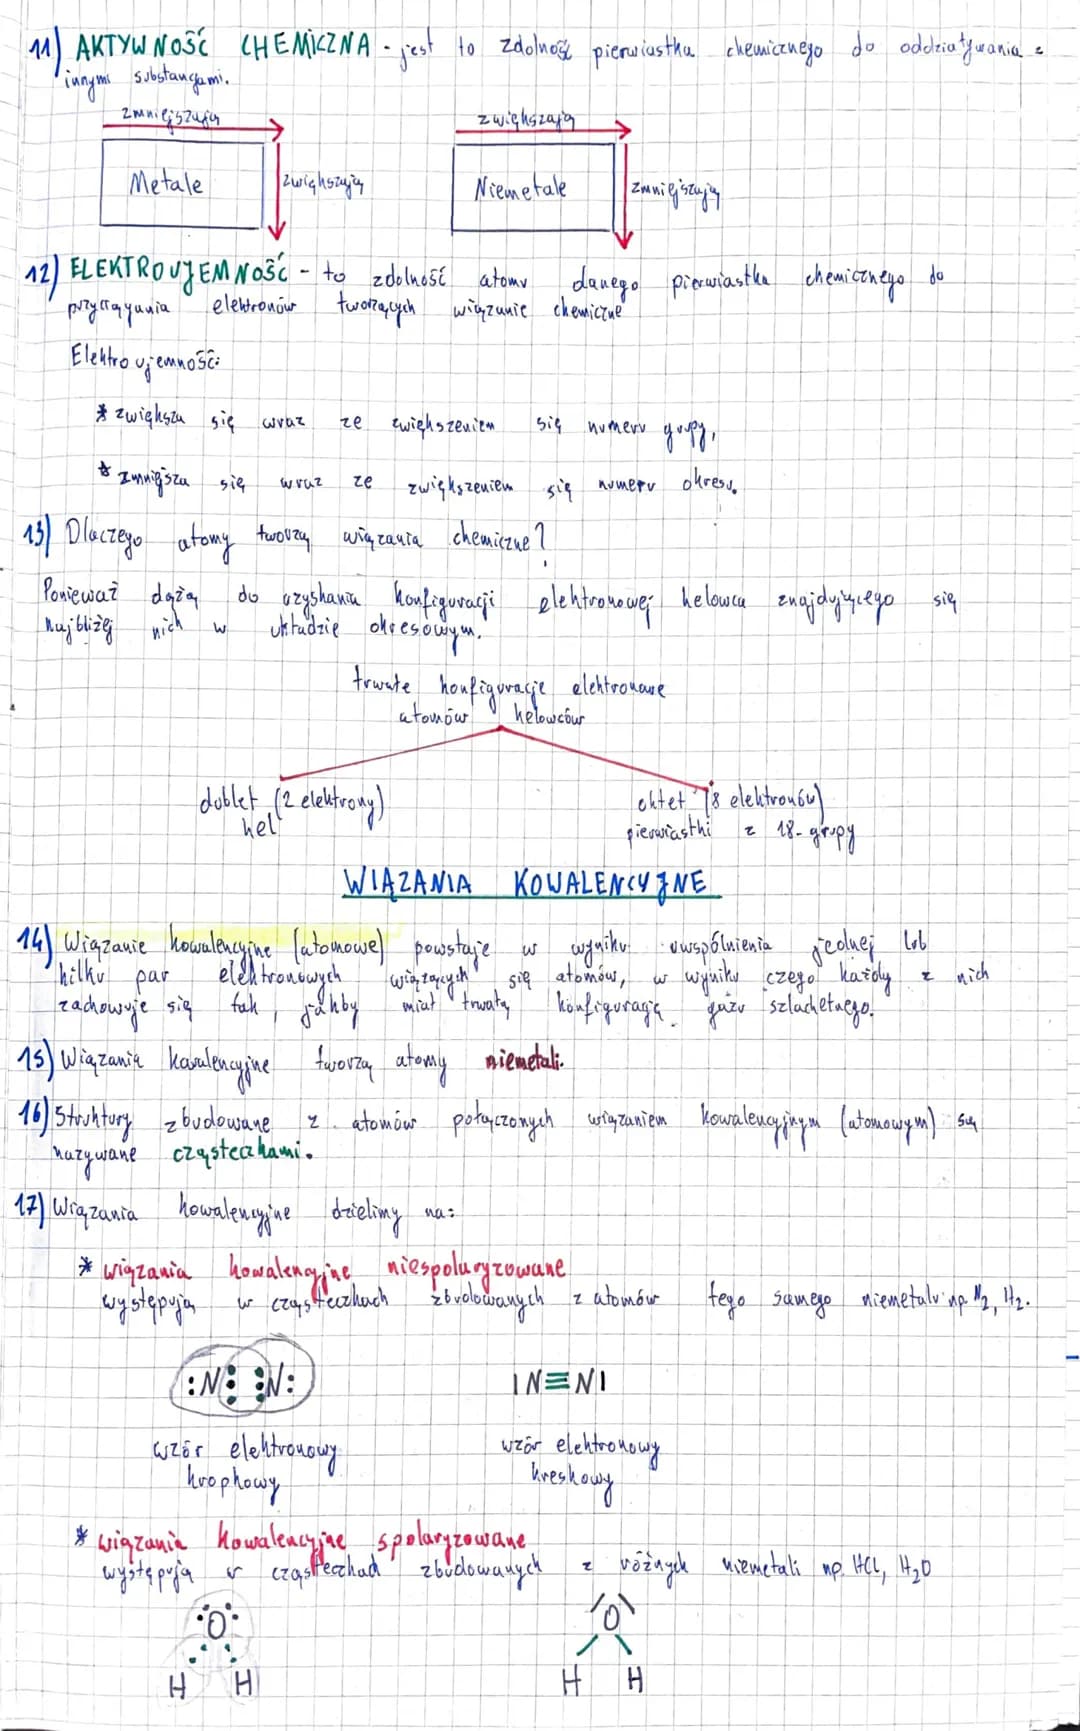 11) AKTYWNOŚĆ CHEMICZNA - jest to zdolność pierwiastka chemicznego do oddziaływania z
innymi substancjami.
zmniejszają
zwiększają
Metale
zwiększają
Niemetale
zmniejszają
12) ELEKTROUJEMNOŚĆ - to zdolność atomu danego pierwiastka chemicznego do
przyciągania elektronów tworzących wiązanie chemiczne
Elektroujemność:
* zwiększa się wraz ze zwiększeniem się numeru grupy,
* zmniejsza się wraz ze zwiększeniem się numeru okresu.
13) Dlaczego atomy tworzą wiązania chemiczne?
Ponieważ dążą do uzyskania konfiguracji elektronowej helowca znajdującego się
najbliżej nich w układzie okresowym.
trwałe konfiguracje elektronowe
atomów helowców
dublet (2 elektrony)
hel
oktet (8 elektronów)
pierwiastki z 18-grupy
WIĄZANIA KOWALENCYJNE
14) Wiązanie kowalencyjne (atomowe) powstaje w wyniku uwspólnienia jednej lub
kilku par elektronowych wiążących się atomów, w wyniku czego każdy z nich
zachowuje się tak, jakby miał trwałą konfigurację gazu szlachetnego.
15) Wiązania kowalencyjne tworzą atomy niemetali.
16) Struktury zbudowane z atomów połączonych wiązaniem kowalencyjnym (atomowym) są
nazywane cząsteczkami.
17) Wiązania kowalencyjne dzielimy na:
* wiązania kowalencyjne niespolaryzowane
występują w cząsteczkach zbudowanych z atomów tego samego niemetalu np. N2, H2.
:N⋮ ⋮N:
IN≡NI
wzór elektronowy
kropkowy
wzór elektronowy
kreskowy
* wiązania kowalencyjne spolaryzowane
występują w cząsteczkach zbudowanych z różnych niemetali np. HCl, H2O
O
H H
O
H H